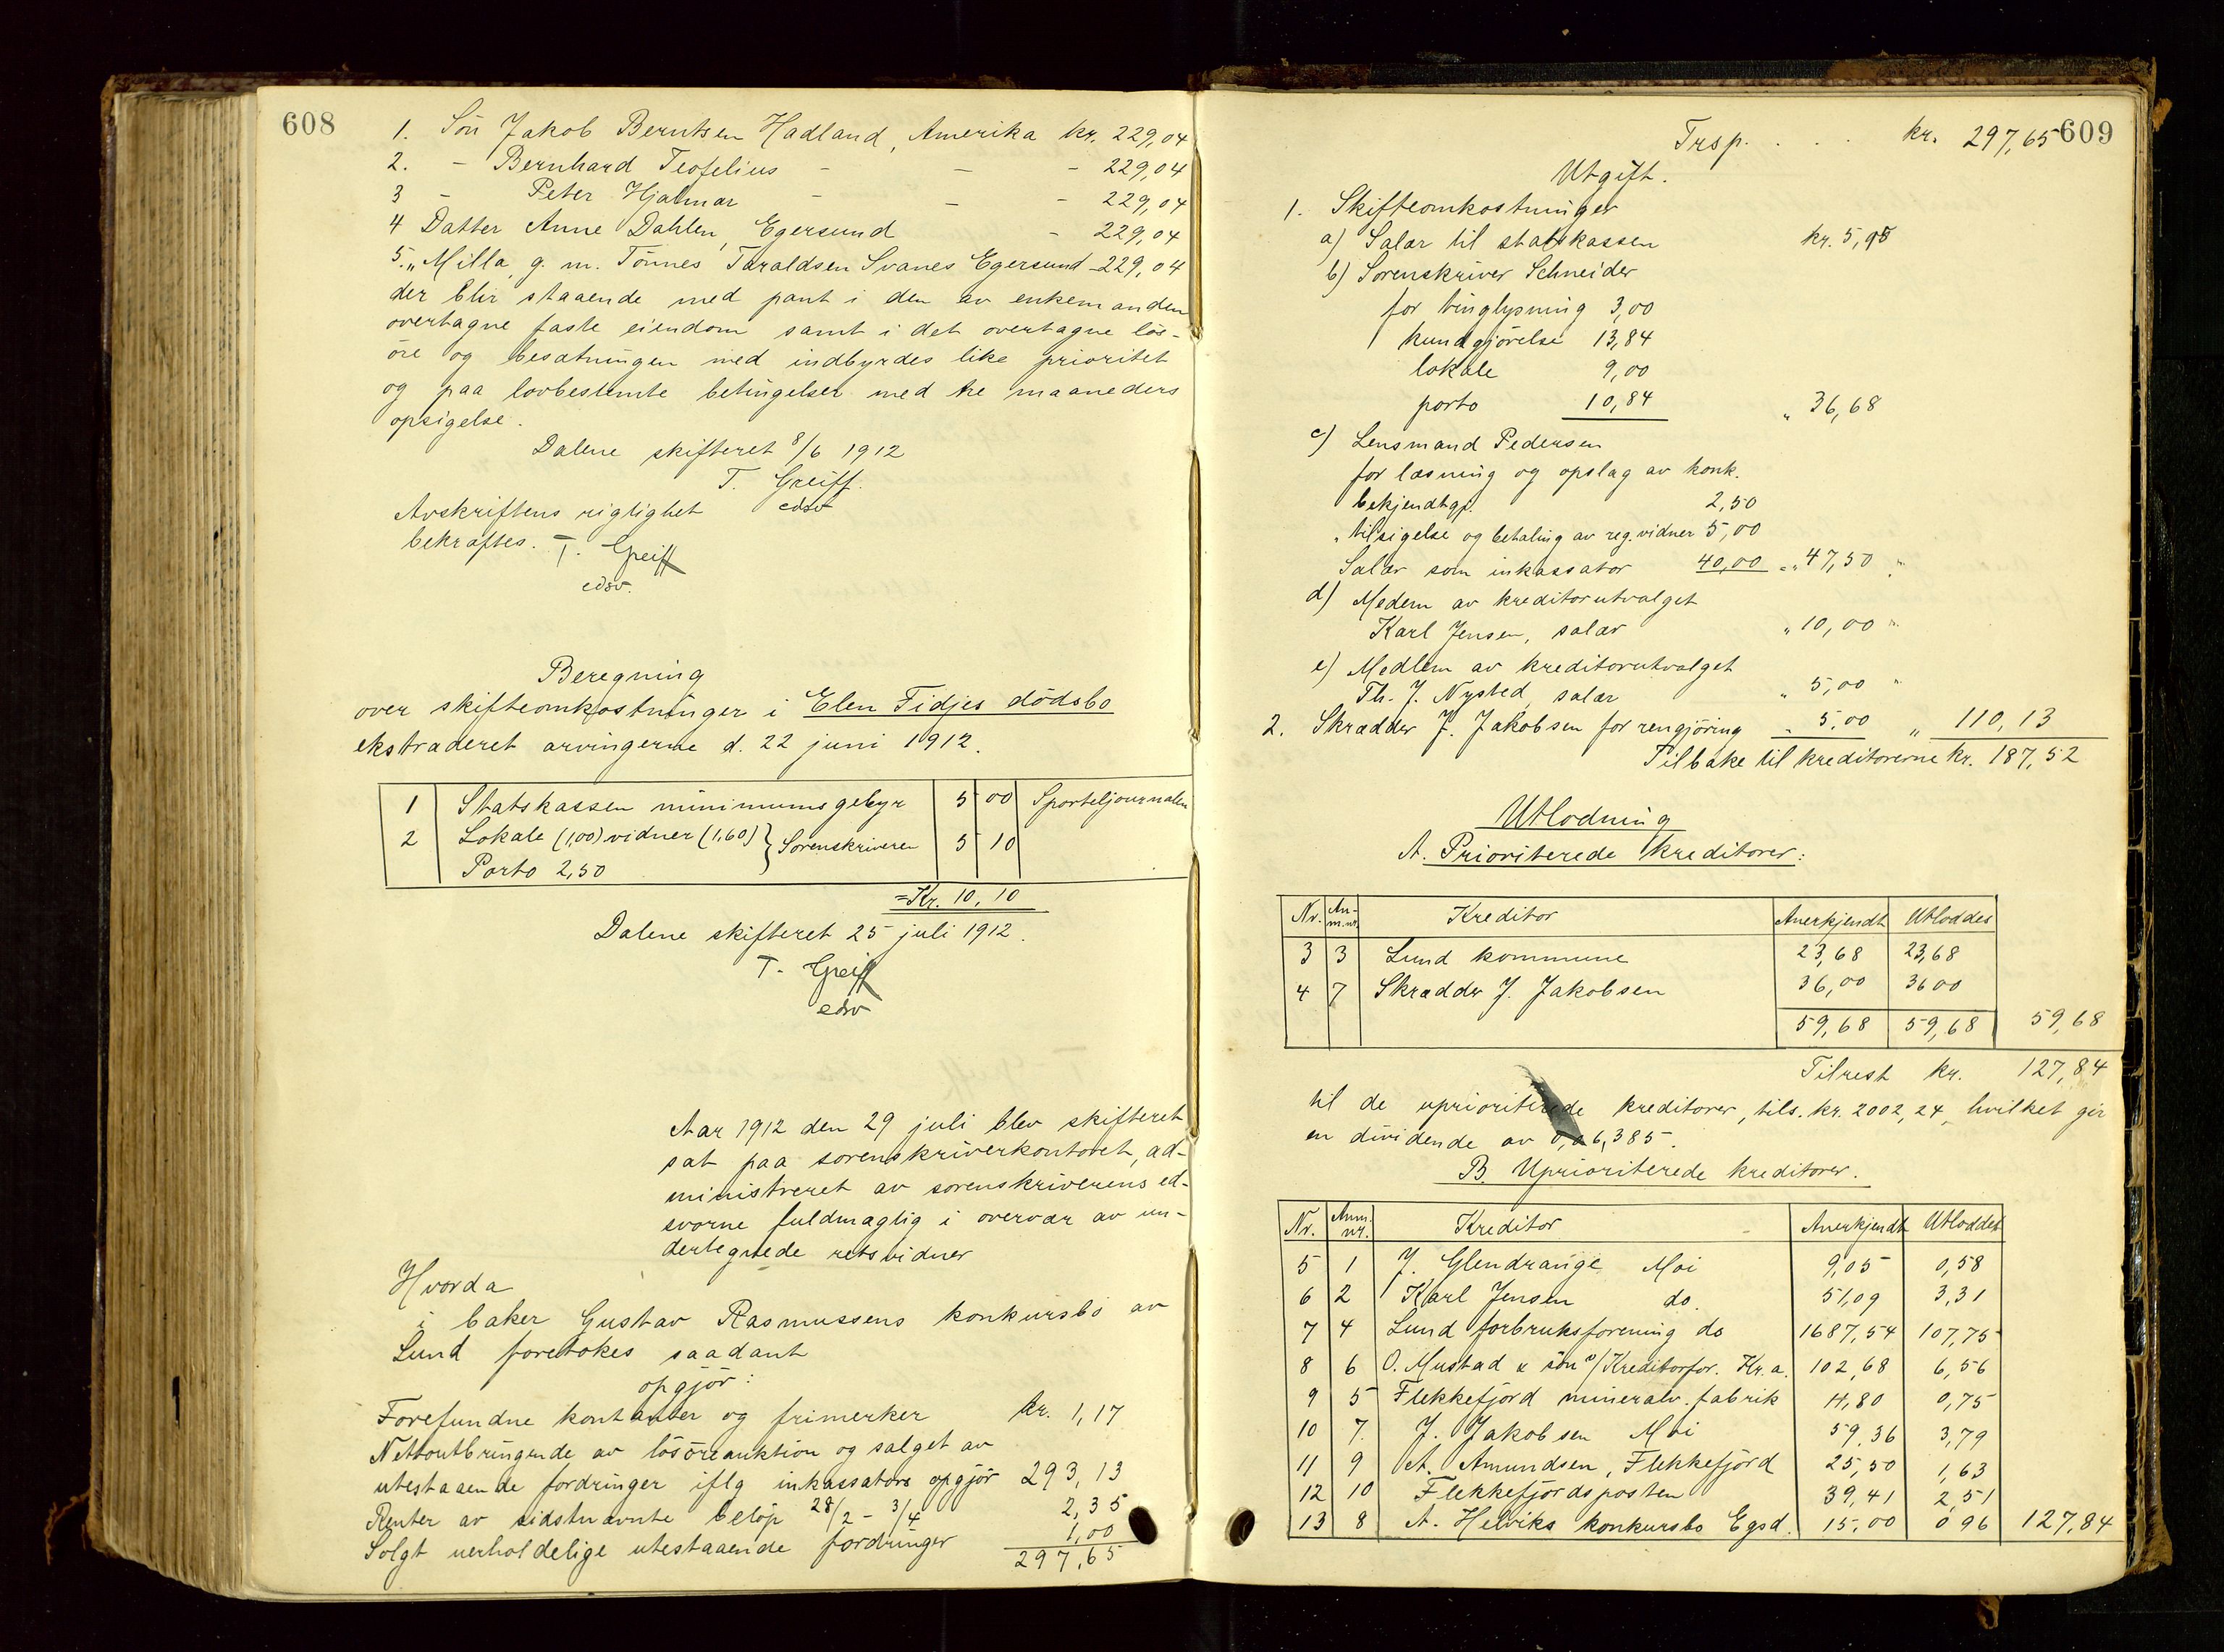 608
1. Sön Jakob Berntsen Hadland, Amerika kr. 229,04
2. - Bernhard Teofelius - - - 229,04
3 - Peter Hjalmar - - - 229,04
4 Datter Anne Dahlen, Egersund - 229,04
5. „ Milla, g. m. Tönnes Taraldsen Svanes Egersund - 229,04
der blir staaende med pant i den av enkemanden
overtagne faste eiendom samt i det overtagne lös-
öre og besætningen med indbyrdes like prioritet
og paa lovbestemte betingelser med tre maaneders
opsigelse.
Dalene skifteret 8/6 1912
T. Greiff.
edsv
Avskriftens rigtighet
bekræftes. T. Greiff
edsv.
Beregning
over skifteomkostninger i Elen Fidjes dödsbo
ekstraderet arvingerne d. 22 juni 1912.
1 Statskassen minimumsgebyr 5 00 Sporteljournalen
2 Lokale (1,00) vidner (1,60) } Sorenskriveren 5 10
Porto 2,50
= Kr. 10,10
Dalene skifteret 25 juli 1912.
T. Greiff
edsv
Aar 1912 den 29 juli blev skifteret
sat paa sorenskriverkontoret, ad-
ministreret av sorenskriverens ed-
svorne fuldmægtig i overvær av un-
dertegnede retsvidner
Hvorda
i baker Gustav Rasmussens konkursbo av
Lund foretokes saadant
opgjör:
Forefundne kontanter og frimerker kr. 1,17
Nettoutbringende av lösöreauktion og salget av
utestaaende fordringer iflg inkassators opgjör 293,13
Renter av sidstnævnte belöp 28/2 - 3/4 2,35
Solgt uerholdelige utestaaende fordringer 1,00
297,65
609
Trsp. . . . kr. 297,65
Utgift.
1. Skifteomkostninger
a) Salær til statskassen kr. 5,95
b) Sorenskriver Schneider
for tinglysning 3,00
kundgjörelse 13,84
lokale 9,00
porto 10,84 „ 36,68
c) Lensmand Pedersen
for læsning og opslag av konk.
bekjendtgj. 2,50
„ tilsigelse og betaling av reg. vidner 5,00
Salær som inkassator 40,00 = „ 47,50 „
d) Medem av kreditorutvalget
Karl Jensen, salær „ 10,00 „
e) Medlem av kreditorutvalget
Th. J. Nysted, salær „ 5,00 „
2. Skrædder J. Jakobsen for rengjöring „ 5,00 „ 110,13
Tilbake til kreditorerne kr. 187,52
Utlodning
A. Prioriterede kreditorer:
Nr. An-m.nr. Kreditor Anerkjendt Utloddes
3 3 Lund kommune 23,68 23,68
4 7 Skrædder J. Jakobsen 36,00 36 00
59,68 59,68 59,68
Tilrest kr. 127,84
til de uprioriterede kreditorer, tils. kr. 2002,24, hvilket gir
en dividende av 0,06,385.
B. Uprioriterede kreditorer.
Nr. Anm. nr. Kreditor Anerkjendt Utloddet
5 1 J. Glendrange Moi 9,05 0,58
6 2 Karl Jensen do. 51,09 3,31
7 4 Lund forbruksforening do 1687,54 107,75
8 6 O. Mustad & sön v/ Kreditorfor. Kr.a. 102,68 6,56
9 5 Flekkefjord mineralv. fabrik 11,80 0,75
10 7. J. Jakobsen Moi 59,36 3,79
11 9 A. Amundsen, Flekkefjord 25,50 1,63
12 10 Flekkefjordsposten 39,41 2,51
13 8 A. Helviks konkursbo Egsd. 15,00 0 96 127,84